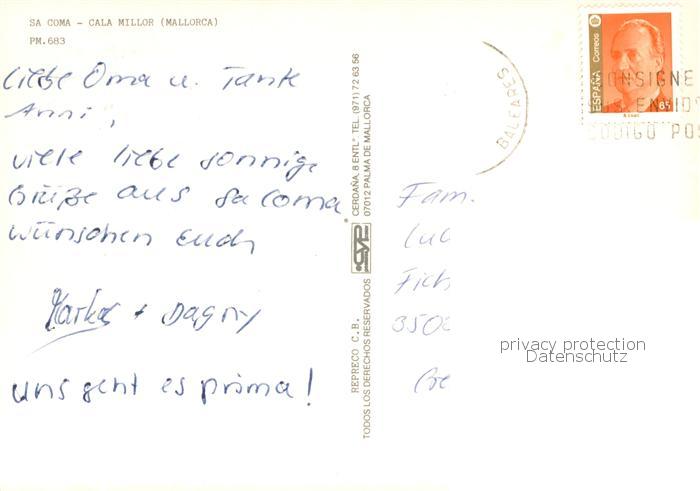 SA COMA - CALA MILLOR (MALLORCA)
PM.683
liebe Oma u. Tante
Anni,
viele liebe sonnige
Grüße aus Sa Coma
wünschen Euch
Markus + Dagny
uns geht es prima!
REPRECO C.B.
TODOS LOS DERECHOS RESERVADOS
GYP
CERDAÑA, 8 ENTL° TEL. (971) 72 63 56
07012 PALMA DE MALLORCA
BALEARES
ESPAÑA
Correos
85
CONSIGNE
EN
CODIGO POS
Fam.
3502
privacy protection
Datenschutz